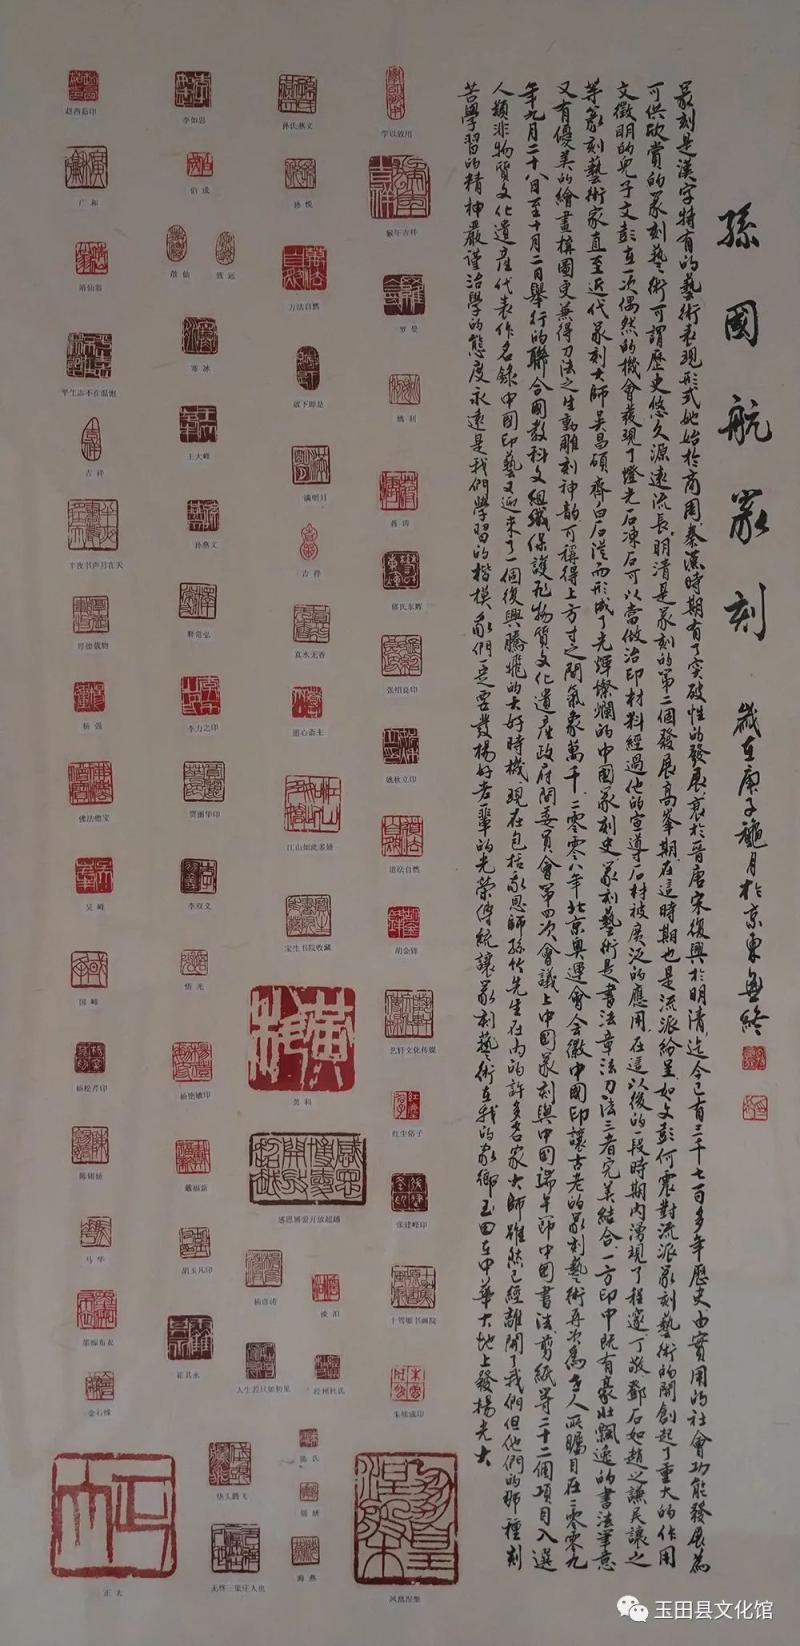 孫國航篆刻
歲在庚子龝月於京東無終
篆刻是漢字特有的藝術表現形式她始於商周秦漢時期有了突破性的發展衰於晉唐宋復興於明清迄今已有三千七百多年歷史由實用的社會功能發展為
可供欣賞的篆刻藝術可謂歷史悠久源遠流長明清是篆刻的第二個發展高峯期在這時期也是流派紛呈如文彭何震對流派篆刻藝術的開創起了重大的作用
文徵明的兒子文彭在一次偶然的機會發現了燈光石凍石可以當做治印材料經過他的宣導石材被廣泛的應用在這以後的一段時期內湧現了程邃丁敬鄧石如趙之謙吳讓之
等篆刻藝術家直至近代篆刻大師吳昌碩齊白石從而形成了光輝燦爛的中國篆刻史篆刻藝術是書法章法刀法三者完美結合一方印中既有豪壯飄逸的書法筆意
又有優美的繪畫構圖更兼得刀法之生動雕刻神韵可稱得上方寸之間氣象萬千二零零八年北京奧運會會徽中國印讓古老的篆刻藝術再次為世人所矚目在二零零九
年九月二十八日至十月二日舉行的聯合國教科文組織保護非物質文化遺產政府間委員會第四次會議上中國篆刻與中國端午節中國書法剪紙等二十二個項目入選
人類非物質文化遺產代表作名錄中國印藝又迎來了一個復興騰飛的大好時機現在包括我恩師孫竹先生在內的許多名家大師雖然已經離開了我們但他們的那種刻
苦學習的精神嚴謹治學的態度永遠是我們學習的楷模我們一定要發揚好老一輩的光榮傳統讓篆刻藝術在我的家鄉玉田在中華大地上發揚光大
赵西茹印
李如思
孙氏燕文
学以致用
广和
伯成
孙悦
猴年吉祥
啟仙
致远
万法自然
罗曼
平生志不在温饱
寒冰
放下即是
姚利
吉祥
王大峰
满明月
蒋涛
半夜书声月在天
孙燕文
吉祥
修氏东辉
厚德载物
释范弘
真水无香
张绍良印
杨强
李力之印
道心斋主
姚秋立印
佛法僧宝
贾丽华印
江山如此多娇
道法自然
吴峰
李双文
宝生书院收藏
胡金锋
国峰
悟光
黄科
艺轩文化传媒
杨松芹印
杨艳敏印
红尘俗子
陈锦娇
戴福新
感恩博爱开放超越
张建峰印
马华
胡玉凡印
杨彦涛
俊泊
十驾雕书画院
墨缘布衣
崔其永
人生若只如初见
经州杜氏
朱继成印
金石缘
正大
快头腾飞
陈氏
无终三家庄人也
海燕
凤凰涅槃
玉田县文化馆